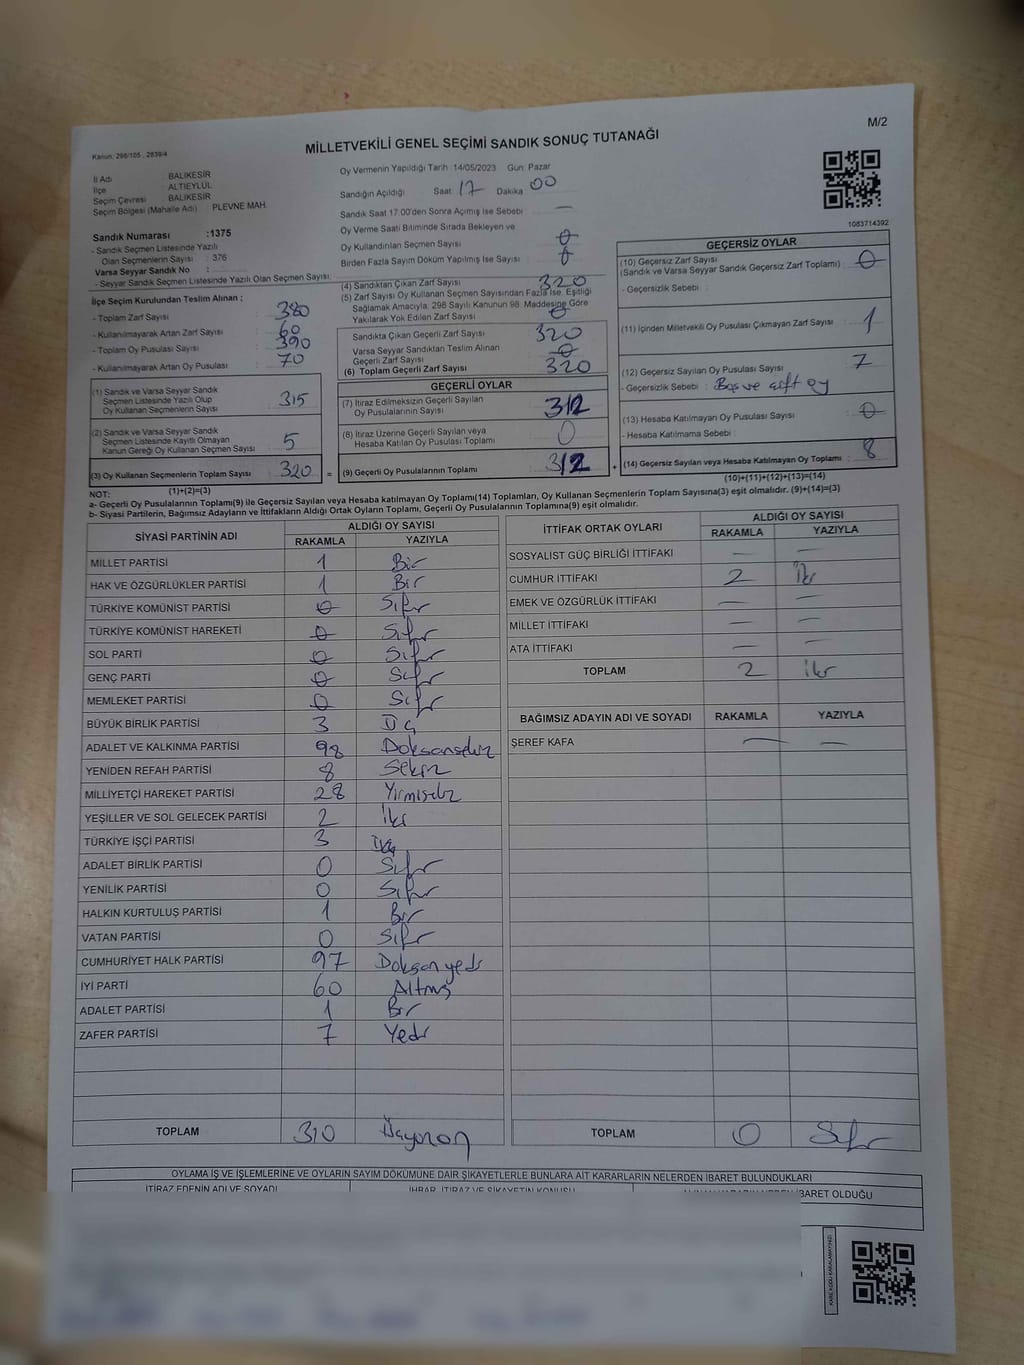 M/2
Kanun: 298/105 , 2839/4
MİLLETVEKİLİ GENEL SEÇİMİ SANDIK SONUÇ TUTANAĞI
İl Adı BALIKESİR
İlçe ALTIEYLÜL
Seçim Çevresi BALIKESİR
Seçim Bölgesi (Mahalle Adı) : PLEVNE MAH.
Oy Vermenin Yapıldığı Tarih :14/05/2023 Gün: Pazar
Sandığın Açıldığı Saat 17 Dakika 00
Sandık Saat 17.00'den Sonra Açımış İse Sebebi : —
Oy Verme Saati Bitiminde Sırada Bekleyen ve
Oy Kullandırılan Seçmen Sayısı 0
Birden Fazla Sayım Döküm Yapılmış İse Sayısı : 0
1083714392
Sandık Numarası :1375
- Sandık Seçmen Listesinde Yazılı
Olan Seçmenlerin Sayısı : 376
Varsa Seyyar Sandık No :
- Seyyar Sandık Seçmen Listesinde Yazılı Olan Seçmen Sayısı:
İlçe Seçim Kurulundan Teslim Alınan :
- Toplam Zarf Sayısı : 380
- Kullanılmayarak Artan Zarf Sayısı : 60
- Toplam Oy Pusulası Sayısı : 390
- Kullanılmayarak Artan Oy Pusulası : 70
(1) Sandık ve Varsa Seyyar Sandık
Seçmen Listesinde Yazılı Olup
Oy Kullanan Seçmenlerin Sayısı 315
(2) Sandık ve Varsa Seyyar Sandık
Seçmen Listesinde Kayıtlı Olmayan
Kanun Gereği Oy Kullanan Seçmen Sayısı 5
(3) Oy Kullanan Seçmenlerin Toplam Sayısı 320 =
(1)+(2)=(3)
(4) Sandıktan Çıkan Zarf Sayısı : 320
(5) Zarf Sayısı Oy Kullanan Seçmen Sayısından Fazla İse, Eşitliği
Sağlamak Amacıyla, 298 Sayılı Kanunun 98. Maddesine Göre
Yakılarak Yok Edilen Zarf Sayısı : 0
Sandıkta Çıkan Geçerli Zarf Sayısı 320
Varsa Seyyar Sandıktan Teslim Alınan
Geçerli Zarf Sayısı 0
(6) Toplam Geçerli Zarf Sayısı 320
GEÇERLİ OYLAR
(7) İtiraz Edilmeksizin Geçerli Sayılan
Oy Pusulalarının Sayısı 312
(8) İtiraz Üzerine Geçerli Sayılan veya
Hesaba Katılan Oy Pusulası Toplamı 0
(9) Geçerli Oy Pusulalarının Toplamı 312 +
GEÇERSİZ OYLAR
(10) Geçersiz Zarf Sayısı
(Sandık ve Varsa Seyyar Sandık Geçersiz Zarf Toplamı) : 0
- Geçersizlik Sebebi :
(11) İçinden Milletvekili Oy Pusulası Çıkmayan Zarf Sayısı : 1
(12) Geçersiz Sayılan Oy Pusulası Sayısı : 7
- Geçersizlik Sebebi : Boş ve çift oy
(13) Hesaba Katılmayan Oy Pusulası Sayısı : 0
- Hesaba Katılmama Sebebi :
(14) Geçersiz Sayılan veya Hesaba Katılmayan Oy Toplamı : 8
(10)+(11)+(12)+(13)=(14)
NOT:
a- Geçerli Oy Pusulalarının Toplamı(9) ile Geçersiz Sayılan veya Hesaba katılmayan Oy Toplamı(14) Toplamları, Oy Kullanan Seçmenlerin Toplam Sayısına(3) eşit olmalıdır. (9)+(14)=(3)
b- Siyasi Partilerin, Bağımsız Adayların ve İttifakların Aldığı Ortak Oyların Toplamı, Geçerli Oy Pusulalarının Toplamına(9) eşit olmalıdır.
SİYASİ PARTİNİN ADI ALDIĞI OY SAYISI
RAKAMLA YAZIYLA
MİLLET PARTİSİ 1 Bir
HAK VE ÖZGÜRLÜKLER PARTİSİ 1 Bir
TÜRKİYE KOMÜNİST PARTİSİ 0 Sıfır
TÜRKİYE KOMÜNİST HAREKETİ 0 Sıfır
SOL PARTİ 0 Sıfır
GENÇ PARTİ 0 Sıfır
MEMLEKET PARTİSİ 0 Sıfır
BÜYÜK BİRLİK PARTİSİ 3 Üç
ADALET VE KALKINMA PARTİSİ 98 Doksansekiz
YENİDEN REFAH PARTİSİ 8 Sekiz
MİLLİYETÇİ HAREKET PARTİSİ 28 Yirmisekiz
YEŞİLLER VE SOL GELECEK PARTİSİ 2 İki
TÜRKİYE İŞÇİ PARTİSİ 3
ADALET BİRLİK PARTİSİ 0 Sıfır
YENİLİK PARTİSİ 0 Sıfır
HALKIN KURTULUŞ PARTİSİ 1 Bir
VATAN PARTİSİ 0 Sıfır
CUMHURİYET HALK PARTİSİ 97 Doksan yedi
İYİ PARTİ 60 Altmış
ADALET PARTİSİ 1 Bir
ZAFER PARTİSİ 7 Yedi
TOPLAM 310 Üçyüzon
İTTİFAK ORTAK OYLARI ALDIĞI OY SAYISI
RAKAMLA YAZIYLA
SOSYALIST GÜÇ BİRLİĞİ İTTİFAKI — —
CUMHUR İTTİFAKI 2 İki
EMEK VE ÖZGÜRLÜK İTTİFAKI — —
MİLLET İTTİFAKI — —
ATA İTTİFAKI — —
TOPLAM 2 İki
BAĞIMSIZ ADAYIN ADI VE SOYADI RAKAMLA YAZIYLA
ŞEREF KAFA — —
TOPLAM 0 Sıfır
OYLAMA İŞ VE İŞLEMLERİNE VE OYLARIN SAYIM DÖKÜMÜNE DAİR ŞİKAYETLERLE BUNLARA AİT KARARLARIN NELERDEN İBARET BULUNDUKLARI
İTİRAZ EDENİN ADI VE SOYADI İHBAR, İTİRAZ VE ŞİKAYETİN KONUSU İBARET OLDUĞU
KARE KODU KARALAMAYINIZ!